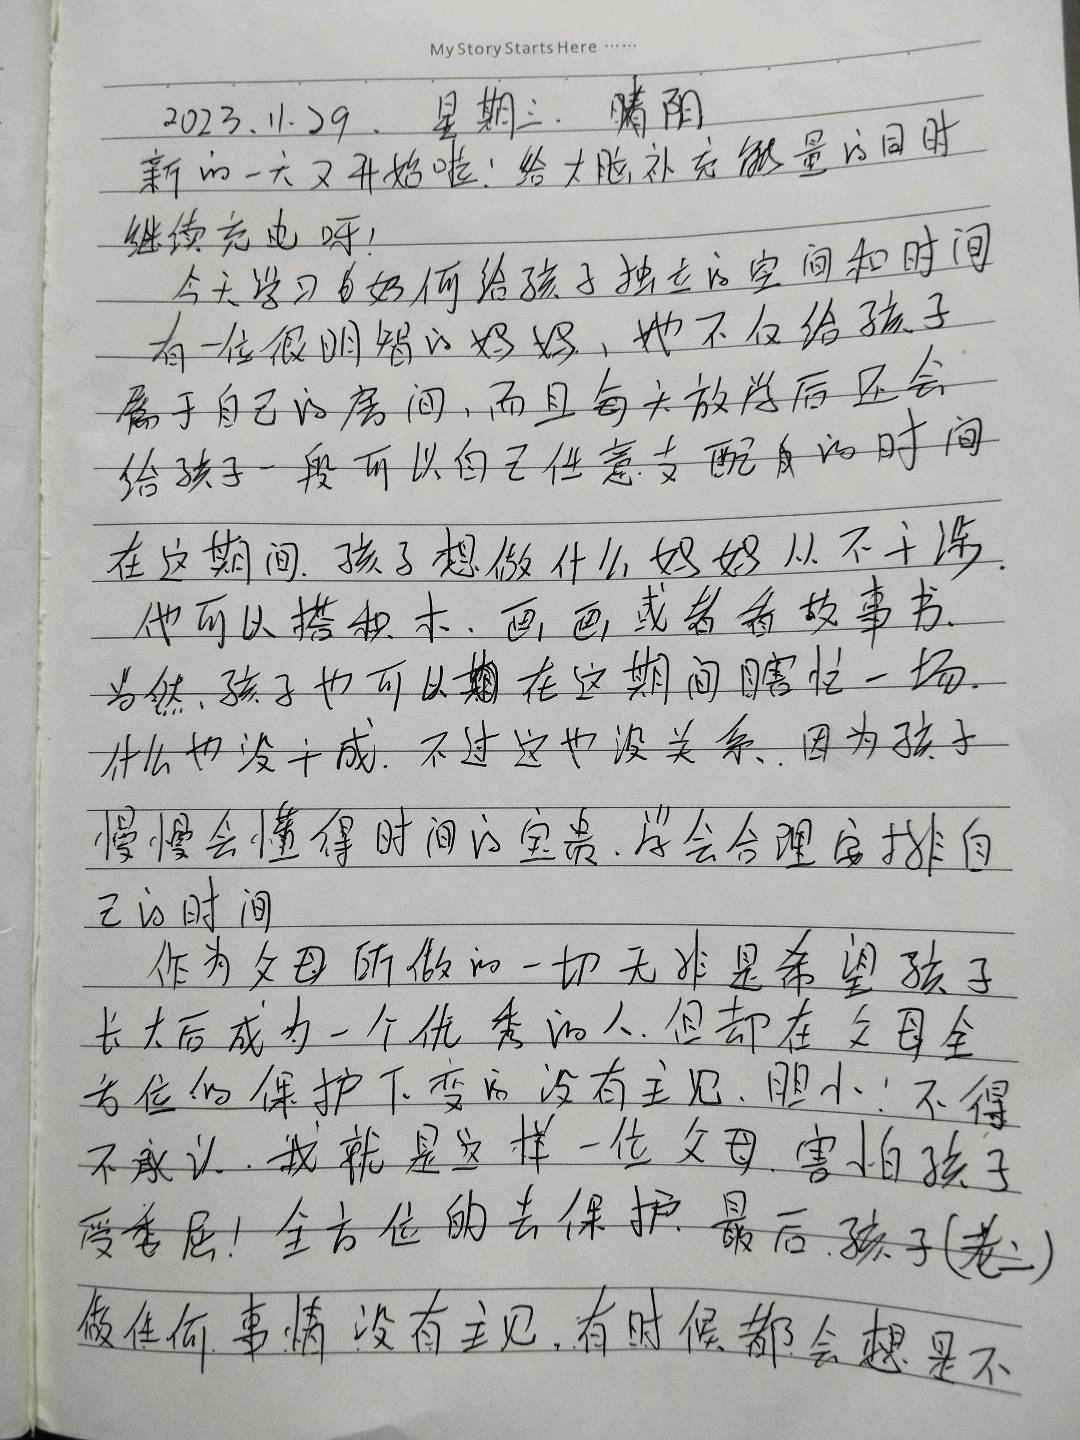 My Story Starts Here ……
2023.11.29. 星期三. 晴阳
新的一天又开始啦！给大脑补充能量的同时
继续充电呀！
今天学习如何给孩子独立的空间和时间
有一位很明智的妈妈，她不仅给孩子
属于自己的房间，而且每天放学后还会
给孩子一段可以自己任意支配的时间
在这期间.孩子想做什么妈妈从不干涉.
他可以搭积木.画画或者看故事书.
当然.孩子也可以在这期间瞎忙一场.
什么也没干成.不过这也没关系.因为孩子
慢慢会懂得时间的宝贵.学会合理安排自
己的时间
作为父母所做的一切无非是希望孩子
长大后成为一个优秀的人.但却在父母全
方位的保护下变的没有主见.胆小！不得
不承认.我就是这样一位父母.害怕孩子
受委屈！全方位的去保护.最后.孩子(老二)
做任何事情没有主见.有时候都会想是不